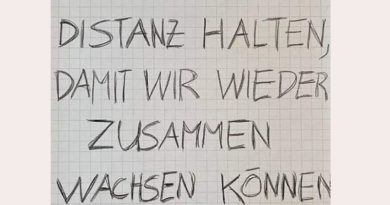 DISTANZ HALTEN,
DAMIT WIR WIEDER
ZUSAMMEN
WACHSEN KÖNNEN